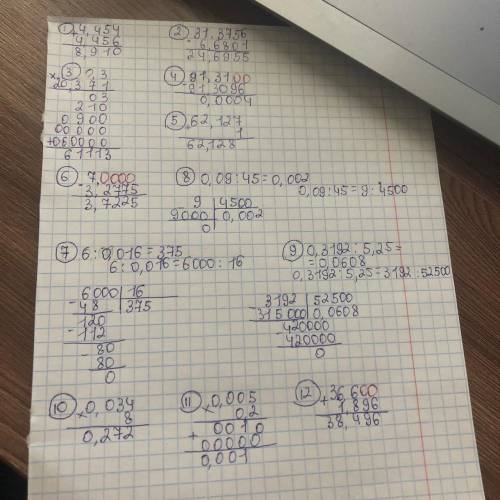 1) 4,454
+ 4,456
8,910
2) 31,3756
- 6,6801
24,6955
3) 0,3
× 20,371
03
210
0900
00000
+060000
61113
4) 91,3100
- 91,3096
0,0004
5) 62,127
+ 1
62,128
6) 7,0000
- 3,2775
3,7225
8) 0,09:45=0,002
0,09:45=9:4500
9 | 4500
9000 | 0,002
0
7) 6:0,016=375
6:0,016=6000:16
6000 | 16
- 48 | 375
120
- 112
- 80
80
0
9) 0,3192:5,25=
=0,0608
0,3192:5,25=3192:52500
3192 | 52500
- 315000 | 0,0608
- 420000
420000
0
10) 0,034
× 8
0,272
11) 0,005
× 0,2
0010
+ 00000
0,001
12) 36,600
+ 1,896
38,496